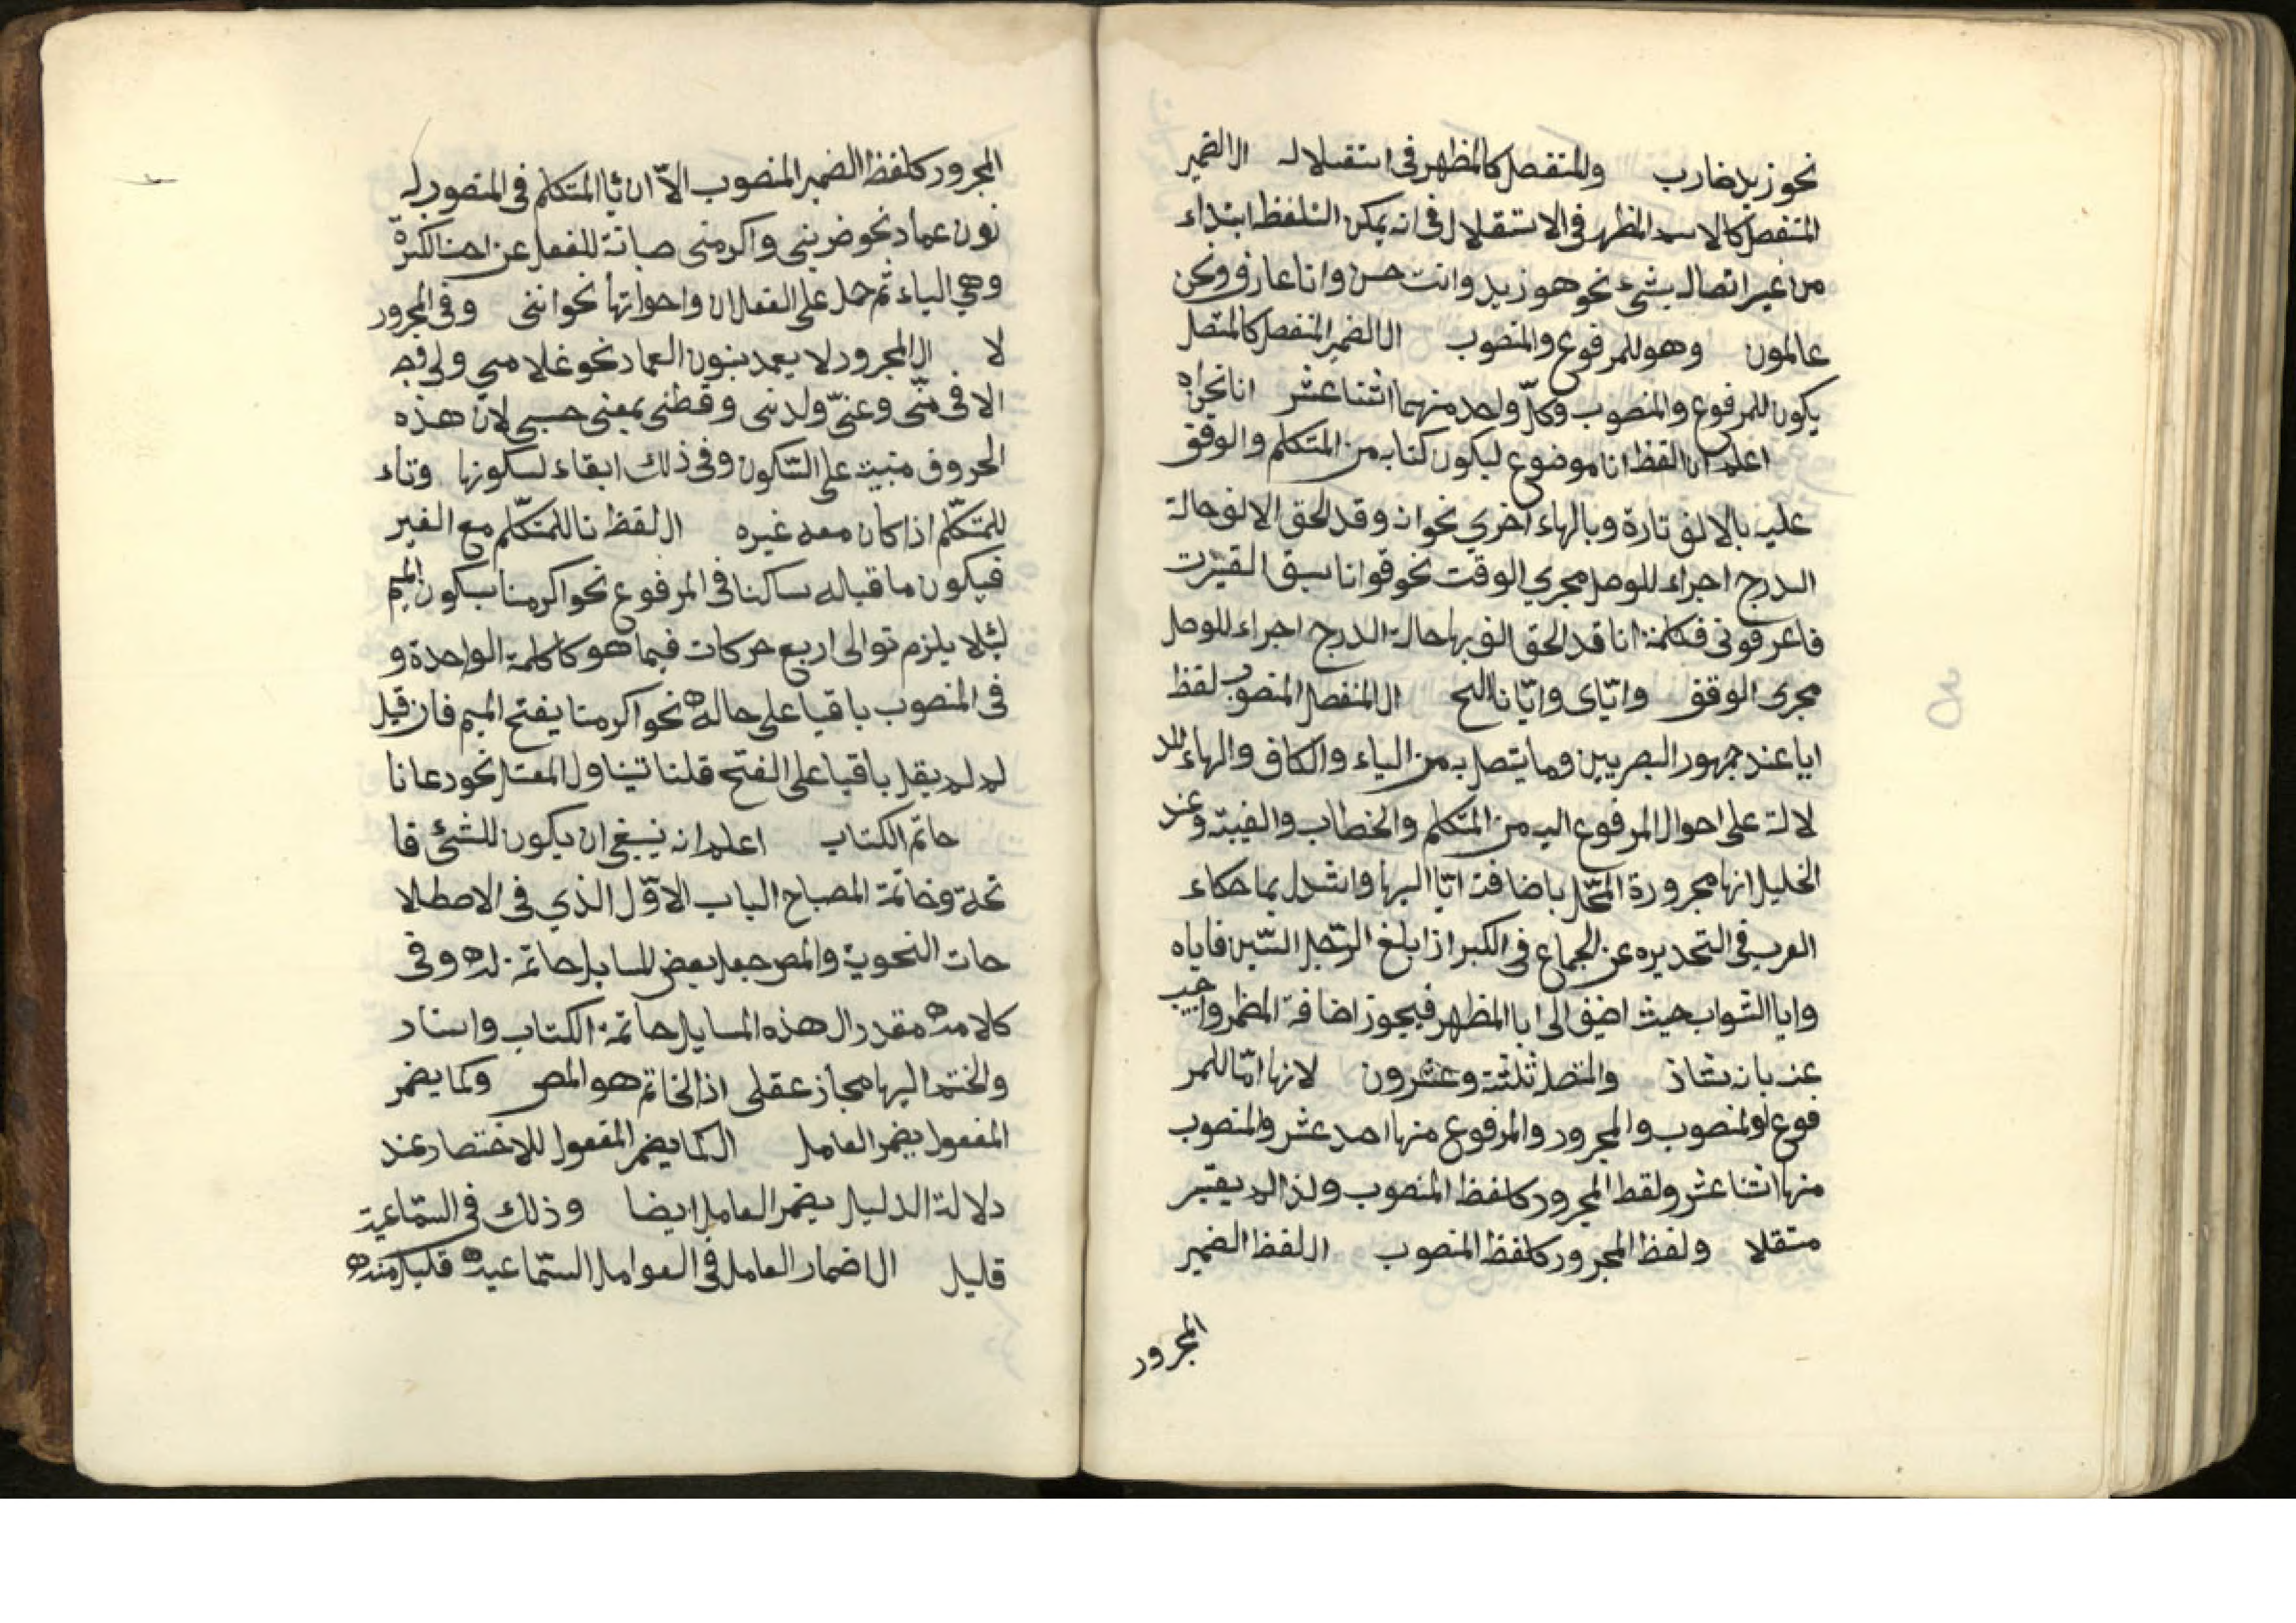 نحو زيد ضارب والمتفصل كالمظهر فى استقلاله ال الضمير
المتفصل كالاسم المظهر فى الاستقلال فى انه يمكن التلفظ ابتداء
من غير اتصاله بشئ نحو هو زيد وانت حسن وانا عارف ونحن
عالمون وهو للمرفوع والمنصوب ال الضمير المنفصل كالمتصل
يكون للمرفوع والمنصوب وكلّ واحد منهما اثنتا عشر انا نحن اه
اعلم ان لفظ انا موضوع ليكون كناية من المتكلم والوقف
عليه بالالف تارة وبالهاء اخري نحو انه وقد لحق الالف حالة
الدرج اجراء للوصل مجري الوقت نحو قوانا سبق
فاعرفونى فكلمة انا قد لحق الف بها حالة الدرج اجراء للوصل
مجرى الوقف وايّاى وايّانا الخ ال المنفصل المنصوب لفظ
ايا عند جمهور البصريين وما يتصل به من الياء والكاف والهاء للد
لالة على احوال المرفوع اليه من المتكلم والخطاب والغيبة وعند
الخليل انها مجرورة المحّل باضافة ايّا اليها واستدل بما حكاء
العرب فى التحديره عن الجماع فى الكبر اذا بلغ الرّجل السّتين فاياه
وايا الشواب حيث اضيف الى ايا المظهر فيجوز اضافة المظمر واجيب
عنه بانه شاذ والمتصل ثلثة وعشرون لانها امّا للمر
فوع او المنصوب والمجرور والمرفوع منها احد عشر والمنصوب
منها اثنتا عشر ولفظ المجرور كلفظ المنصوب ولذا لم يعتبر
متقلا ولفظ المجرور كلفظ المنصوب ال لفظ الضمير
المجرور
المجرور كلفظ الضمير المنصوب الاّ ان يا المتكلم فى المنصوب له
نون عماد نحو ضربنى واكرمنى صيانة للفعل عن اخت الكسرة
وهي الياء ثم حمل على الفعل ان واخواتها نحو اننى وفى المجرور
لا ال المجرور لا يعمد بنون العماد نحو غلامي ولى فيه
الا فى منّى وعنّى ولدنى وقطنى بمعنى حسبى لانّ هذه
الحروف مبنية على السّكون وفى ذلك ابقاء لسكونها وتاء
للمتكلّم اذا كان معه غيره ال لفظ نا للمتكلّم مع الغير
فيكون ما قبله ساكنا فى المرفوع نحو اكرمنا بسكون الميم
لئلا يلزم توالى اربع حركات فيما هو كالكلمة الواحدة و
فى المنصوب باقيا على حاله نحو اكرمنا بفتح الميم فان قيل
لم لم يقل باقيا على الفتح قلنا تيناول المعتل نحو دعانا
حاتم الكتاب اعلم انه ينبغى ان يكون للشئ فا
تحة وخاتمة المصباح الباب الاوّل الذي فى الاصطلا
حات النحوية والمص جعل بعض المسايل حاتمة له وفى
كلامه مقدر ال هذه المسايل حاتمة الكتاب واسناد
والختم اليها مجاز عقلى اذ الخاتم هو المص وكما يضمر
المفعول يضمر العامل ال كما يضمر المفعول للاختصار عند
دلالة الدليل يضمر العامل ايضا وذلك فى السّماعية
قليل ال اضمار العامل فى العوامل السّماعيه قليل منه